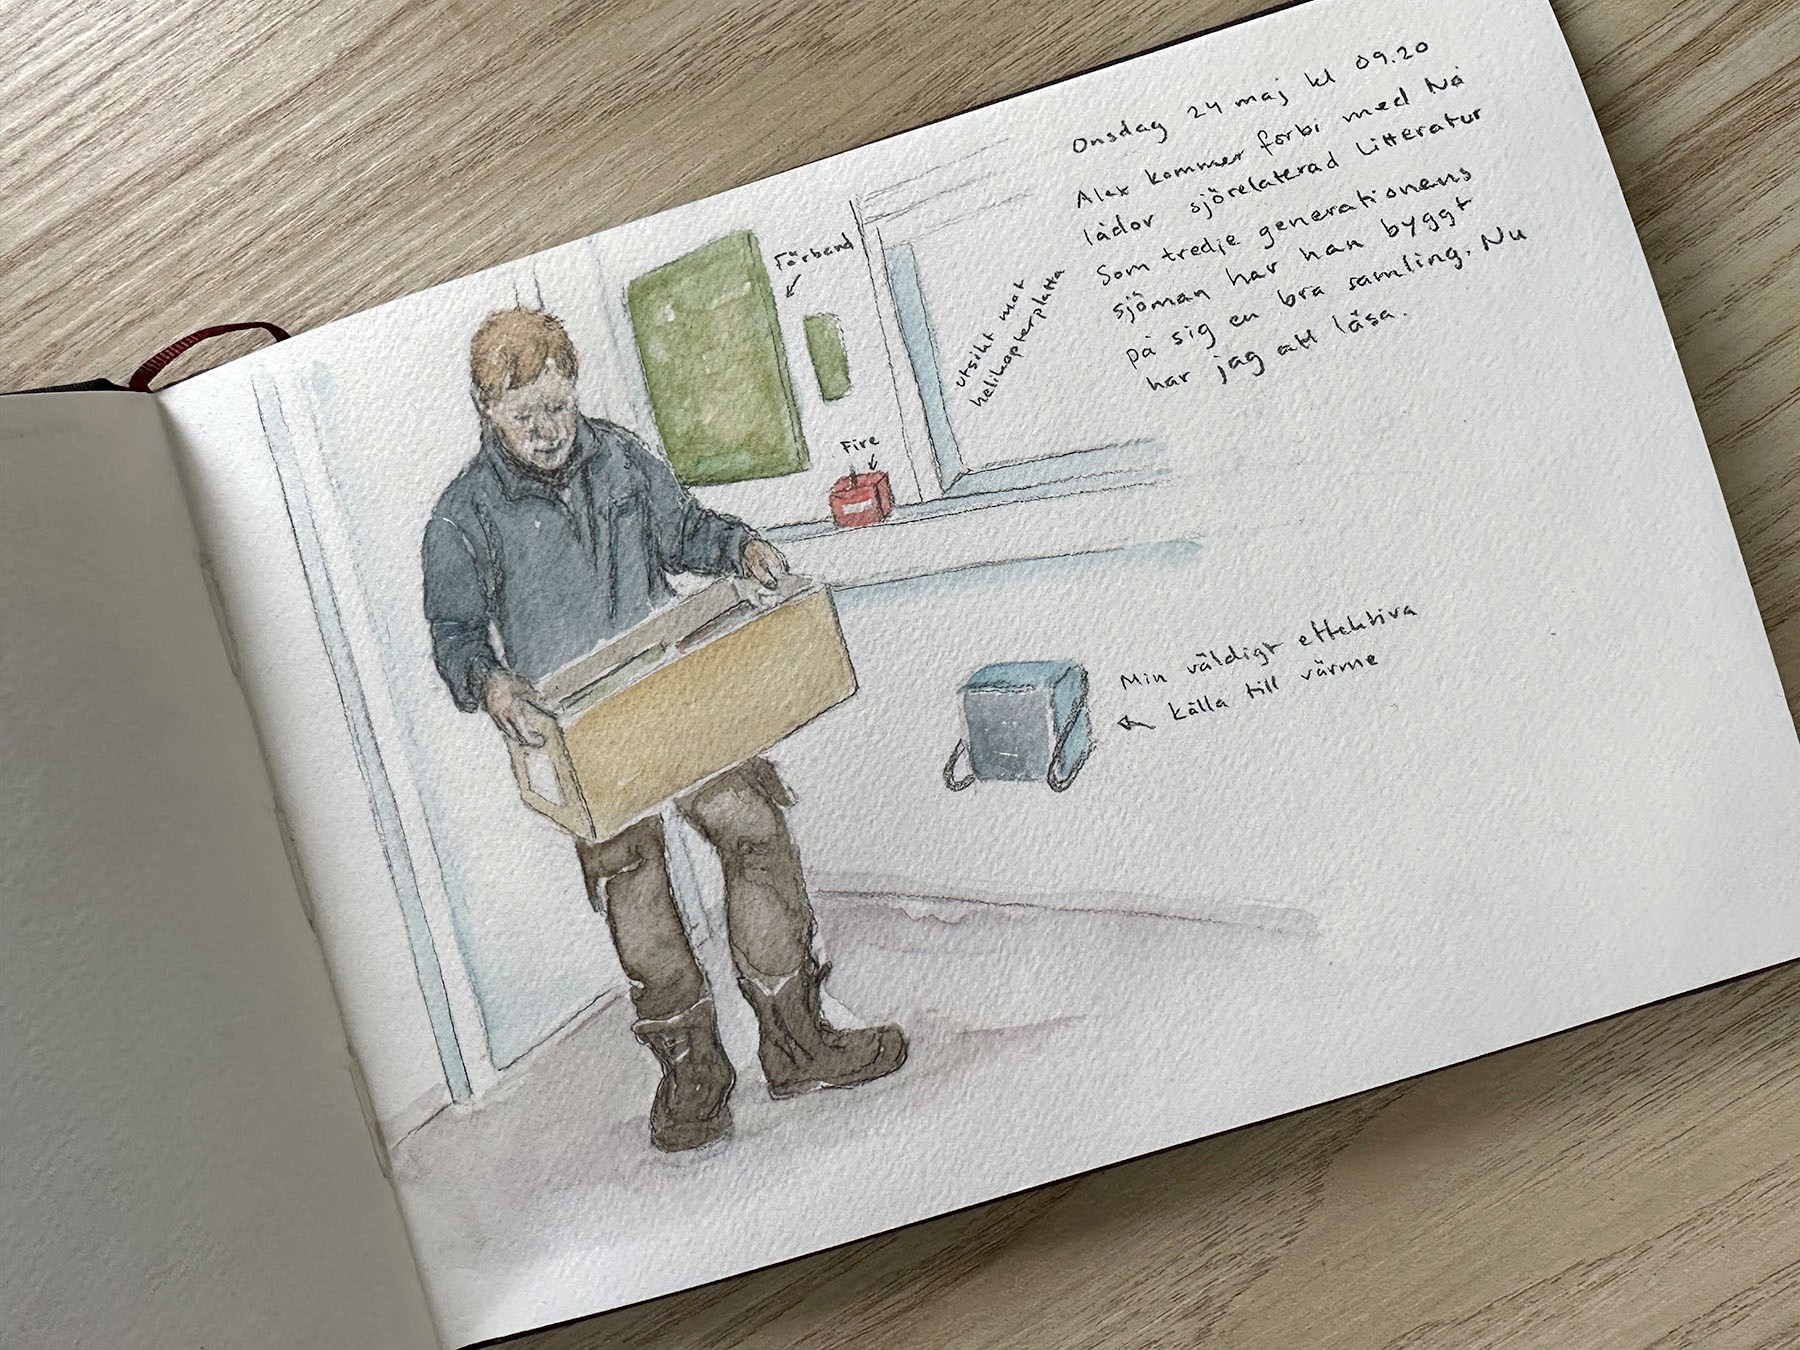 Onsdag 24 maj kl 09.20
Alex kommer förbi med Nå
lådor sjörelaterad Litteratur
Som tredje generationens
sjöman har han byggt
på sig en bra samling. Nu
har jag att läsa.
Förband
utsikt mot
helikopterplatta
Fire
Min väldigt effektiva
källa till värme